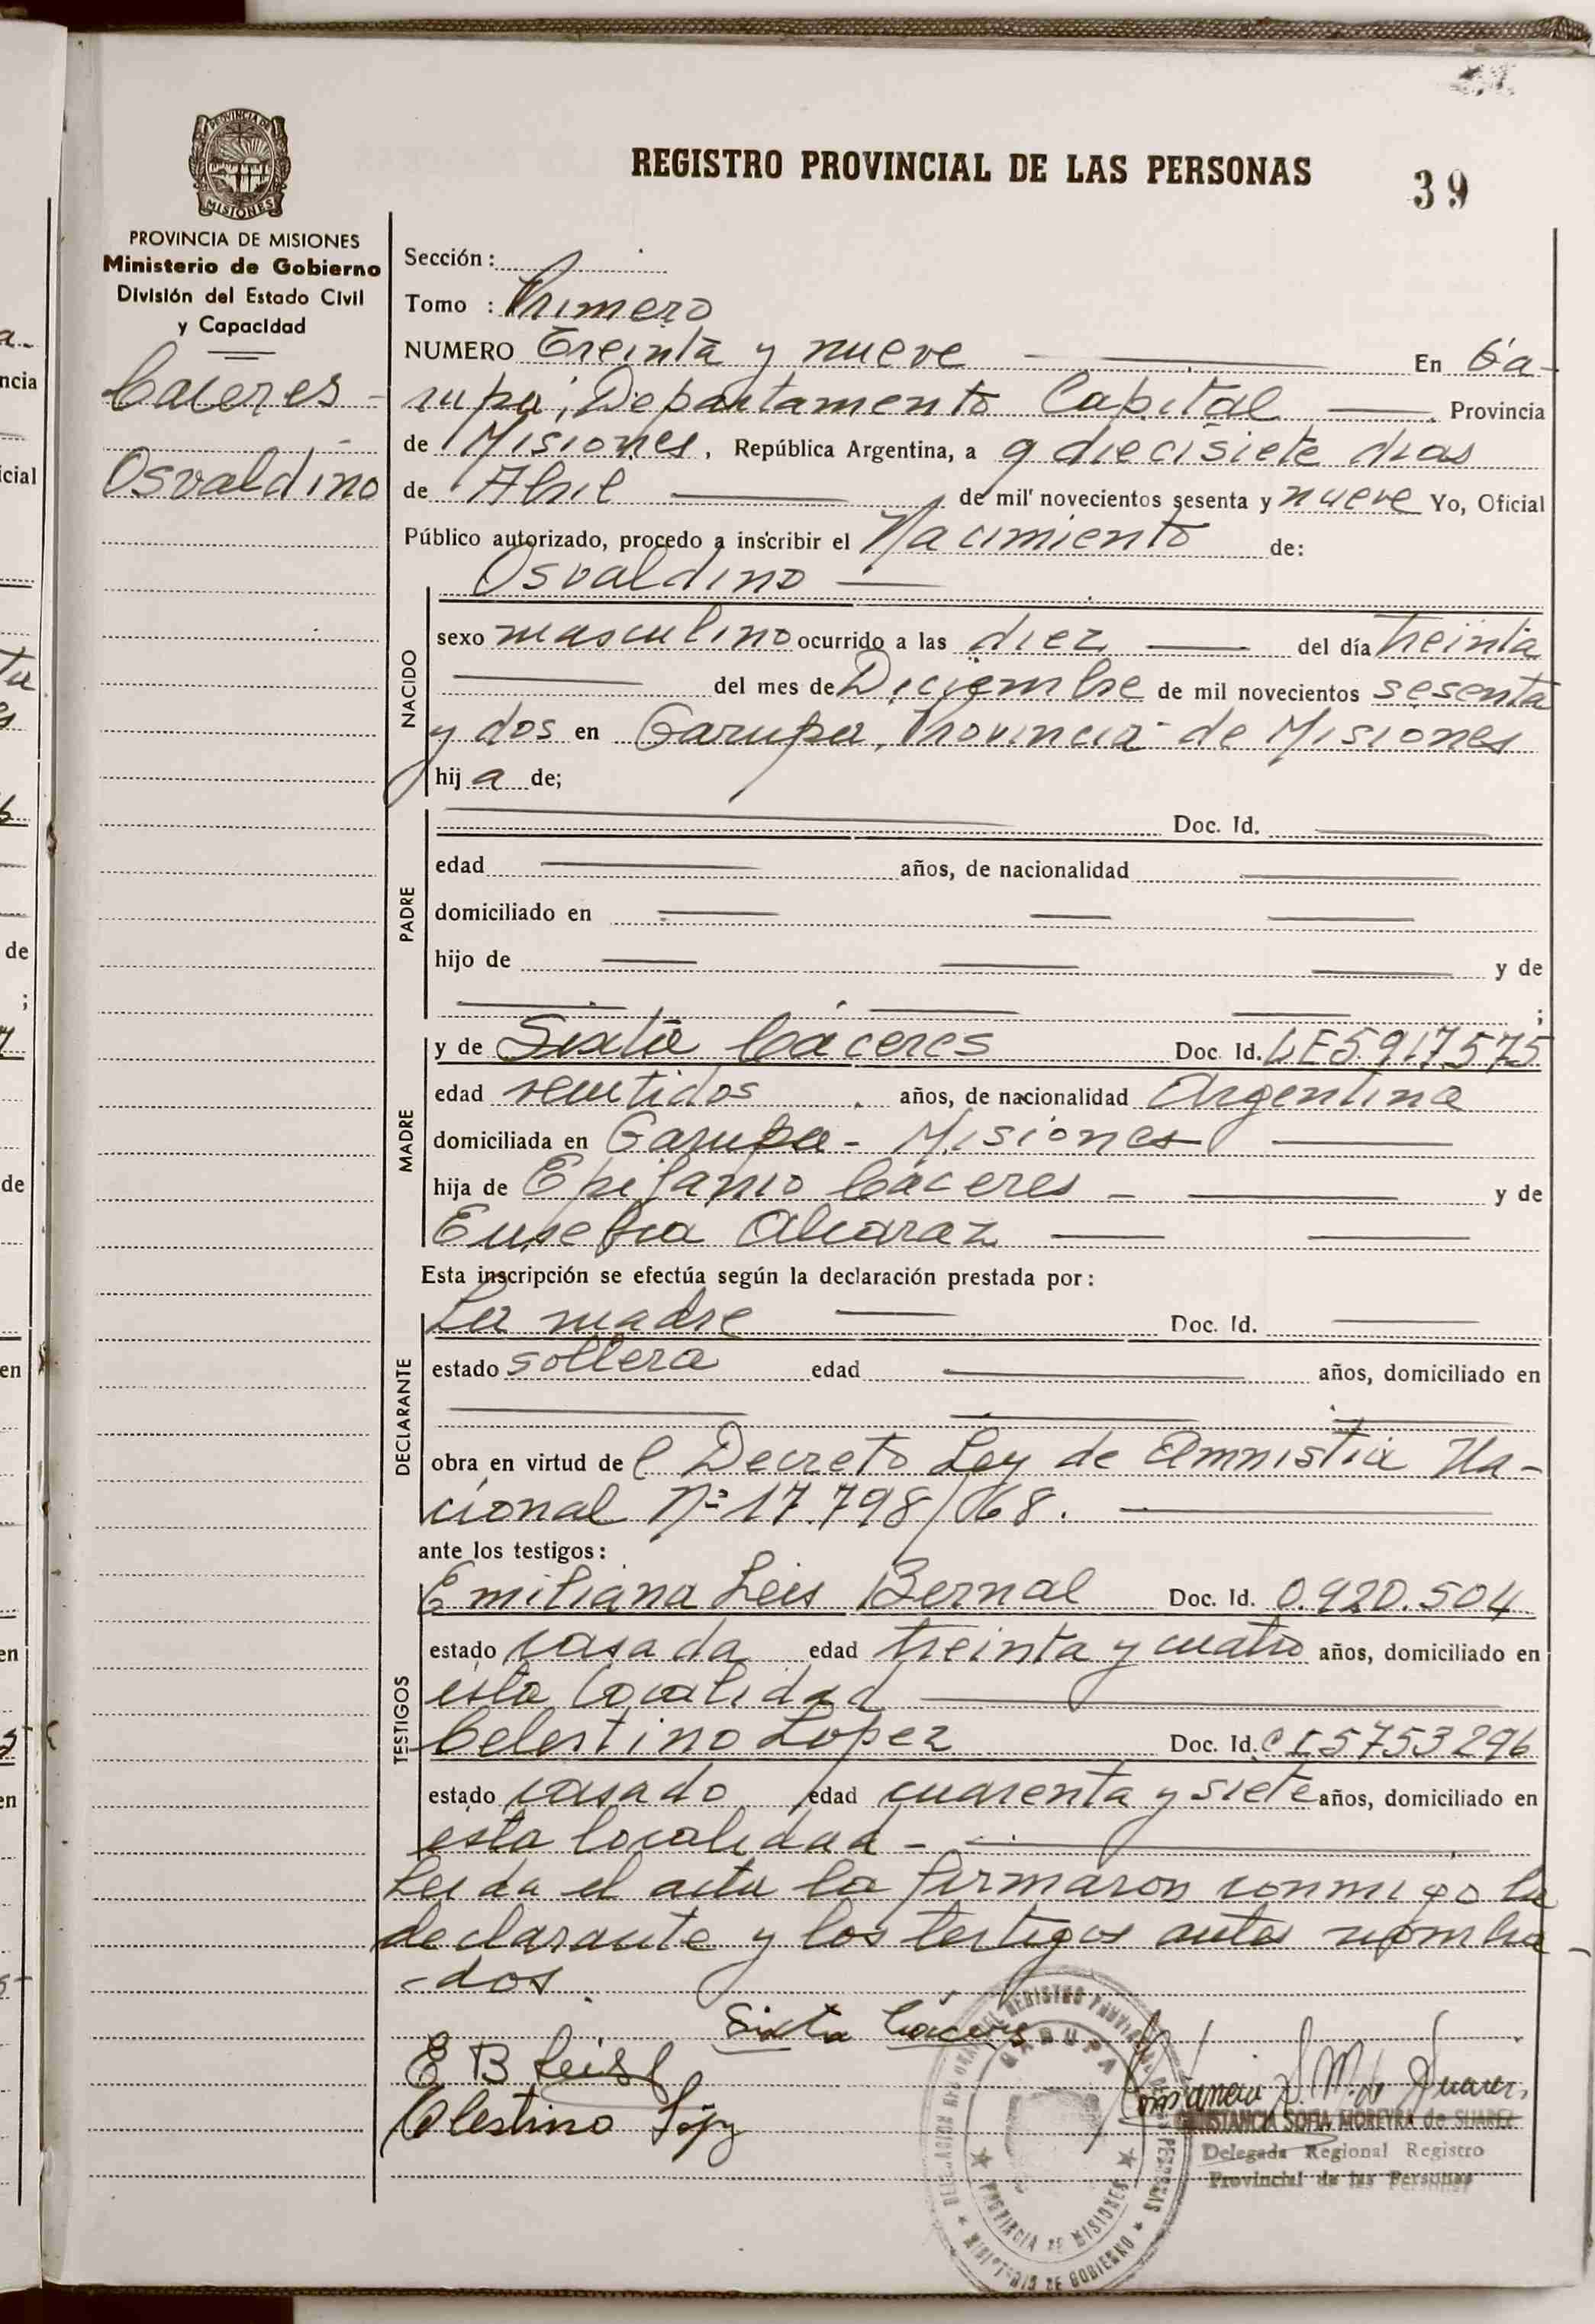 REGISTRO PROVINCIAL DE LAS PERSONAS
39
PROVINCIA DE
MISIONES
PROVINCIA DE MISIONES
Ministerio de Gobierno
División del Estado Civil
y Capacidad
Caceres -
Osvaldino
Sección :
Tomo : Primero
NUMERO Treinta y nueve En Ga-
rupá, Departamento Capital Provincia
de Misiones, República Argentina, a 9 diecisiete dias
de Abril de mil novecientos sesenta y nueve Yo, Oficial
Público autorizado, procedo a inscribir el Nacimiento de:
Osvaldino
NACIDO
sexo masculino ocurrido a las diez del día treinta
del mes de Diciembre de mil novecientos sesenta
y dos en Garupa, Provincia de Misiones
hij a de;
PADRE
Doc. Id.
edad años, de nacionalidad
domiciliado en
hijo de y de
;
MADRE
y de Sixta Cáceres Doc. Id. LE5.917575
edad veintidos años, de nacionalidad Argentina
domiciliada en Garupa - Misiones
hija de Epifanio Cáceres - y de
Eusebia Alcaraz
Esta inscripción se efectúa según la declaración prestada por :
DECLARANTE
La madre Doc. Id.
estado soltera edad años, domiciliado en
obra en virtud de l Decreto Ley de Amnistia Na-
cional Nº 17.798/68.
ante los testigos :
TESTIGOS
Emiliana Leis Bernal Doc. Id. 0.920.504
estado casada edad treinta y cuatro años, domiciliado en
esta localidad
Celestino Lopez Doc. Id. CI5753296
estado casado edad cuarenta y siete años, domiciliado en
esta localidad -
Leida el acta la firmaron conmigo la
declarante y los testigos antes nombra-
-dos.
Sixta Cáceres
E B Leis
Celestino López
Constancia S. M. de Suarez
CONSTANCIA SOFIA MOREYRA de SUAREZ
Delegada Regional Registro
Provincial de las Personas
GARUPA
PROVINCIA DE MISIONES
MINISTERIO DE GOBIERNO